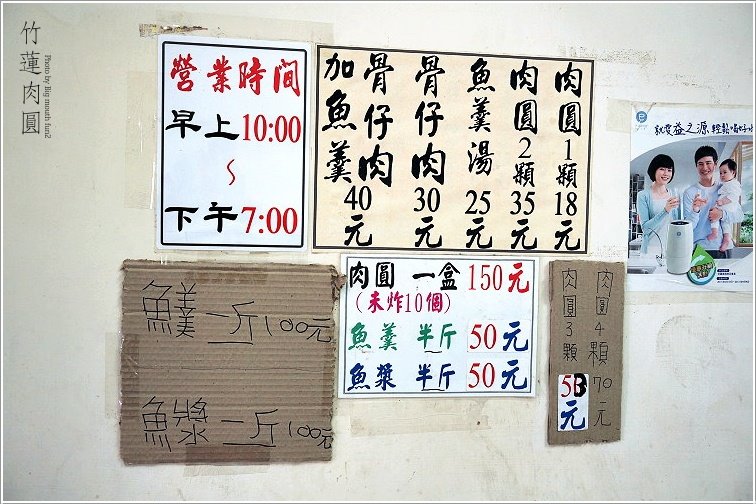 竹蓮肉圓
Photo by: Big mouth fun2
營業時間
早上10:00
~
下午7:00
肉圓1顆18元
肉圓2顆35元
魚羹湯25元
骨仔肉30元
骨仔肉加魚羹40元
就愛益之源,輕鬆喝好水
魚羹一斤100元
魚漿一斤100元
肉圓 一盒 150元
(未炸10個)
魚羹 半斤 50元
魚漿 半斤 50元
肉圓4顆70元
肉圓3顆53元